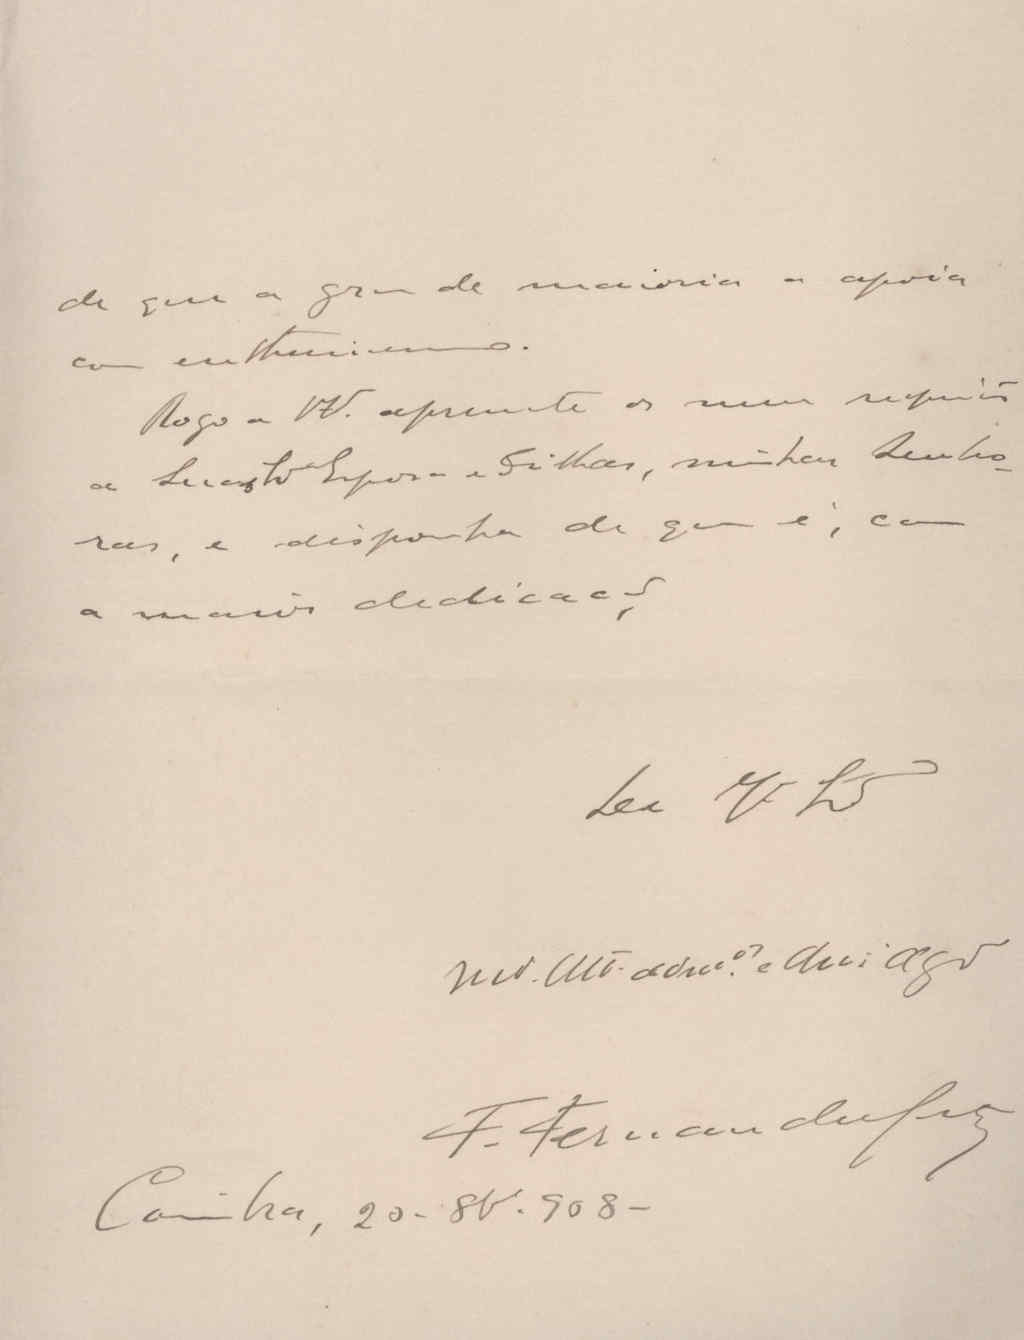 de que a grande maioria a apoia
com enthusiasmo.
Rogo a V. apresente os meus respeitos
a Sua Esposa e Filhas, minhas Senho-
ras, e disponha de quem é, com
a maior dedicação
De V. Exª
Mtº. Attº. admºr. e Amigo
F. Fernandes
Coimbra, 20-8bro.908-